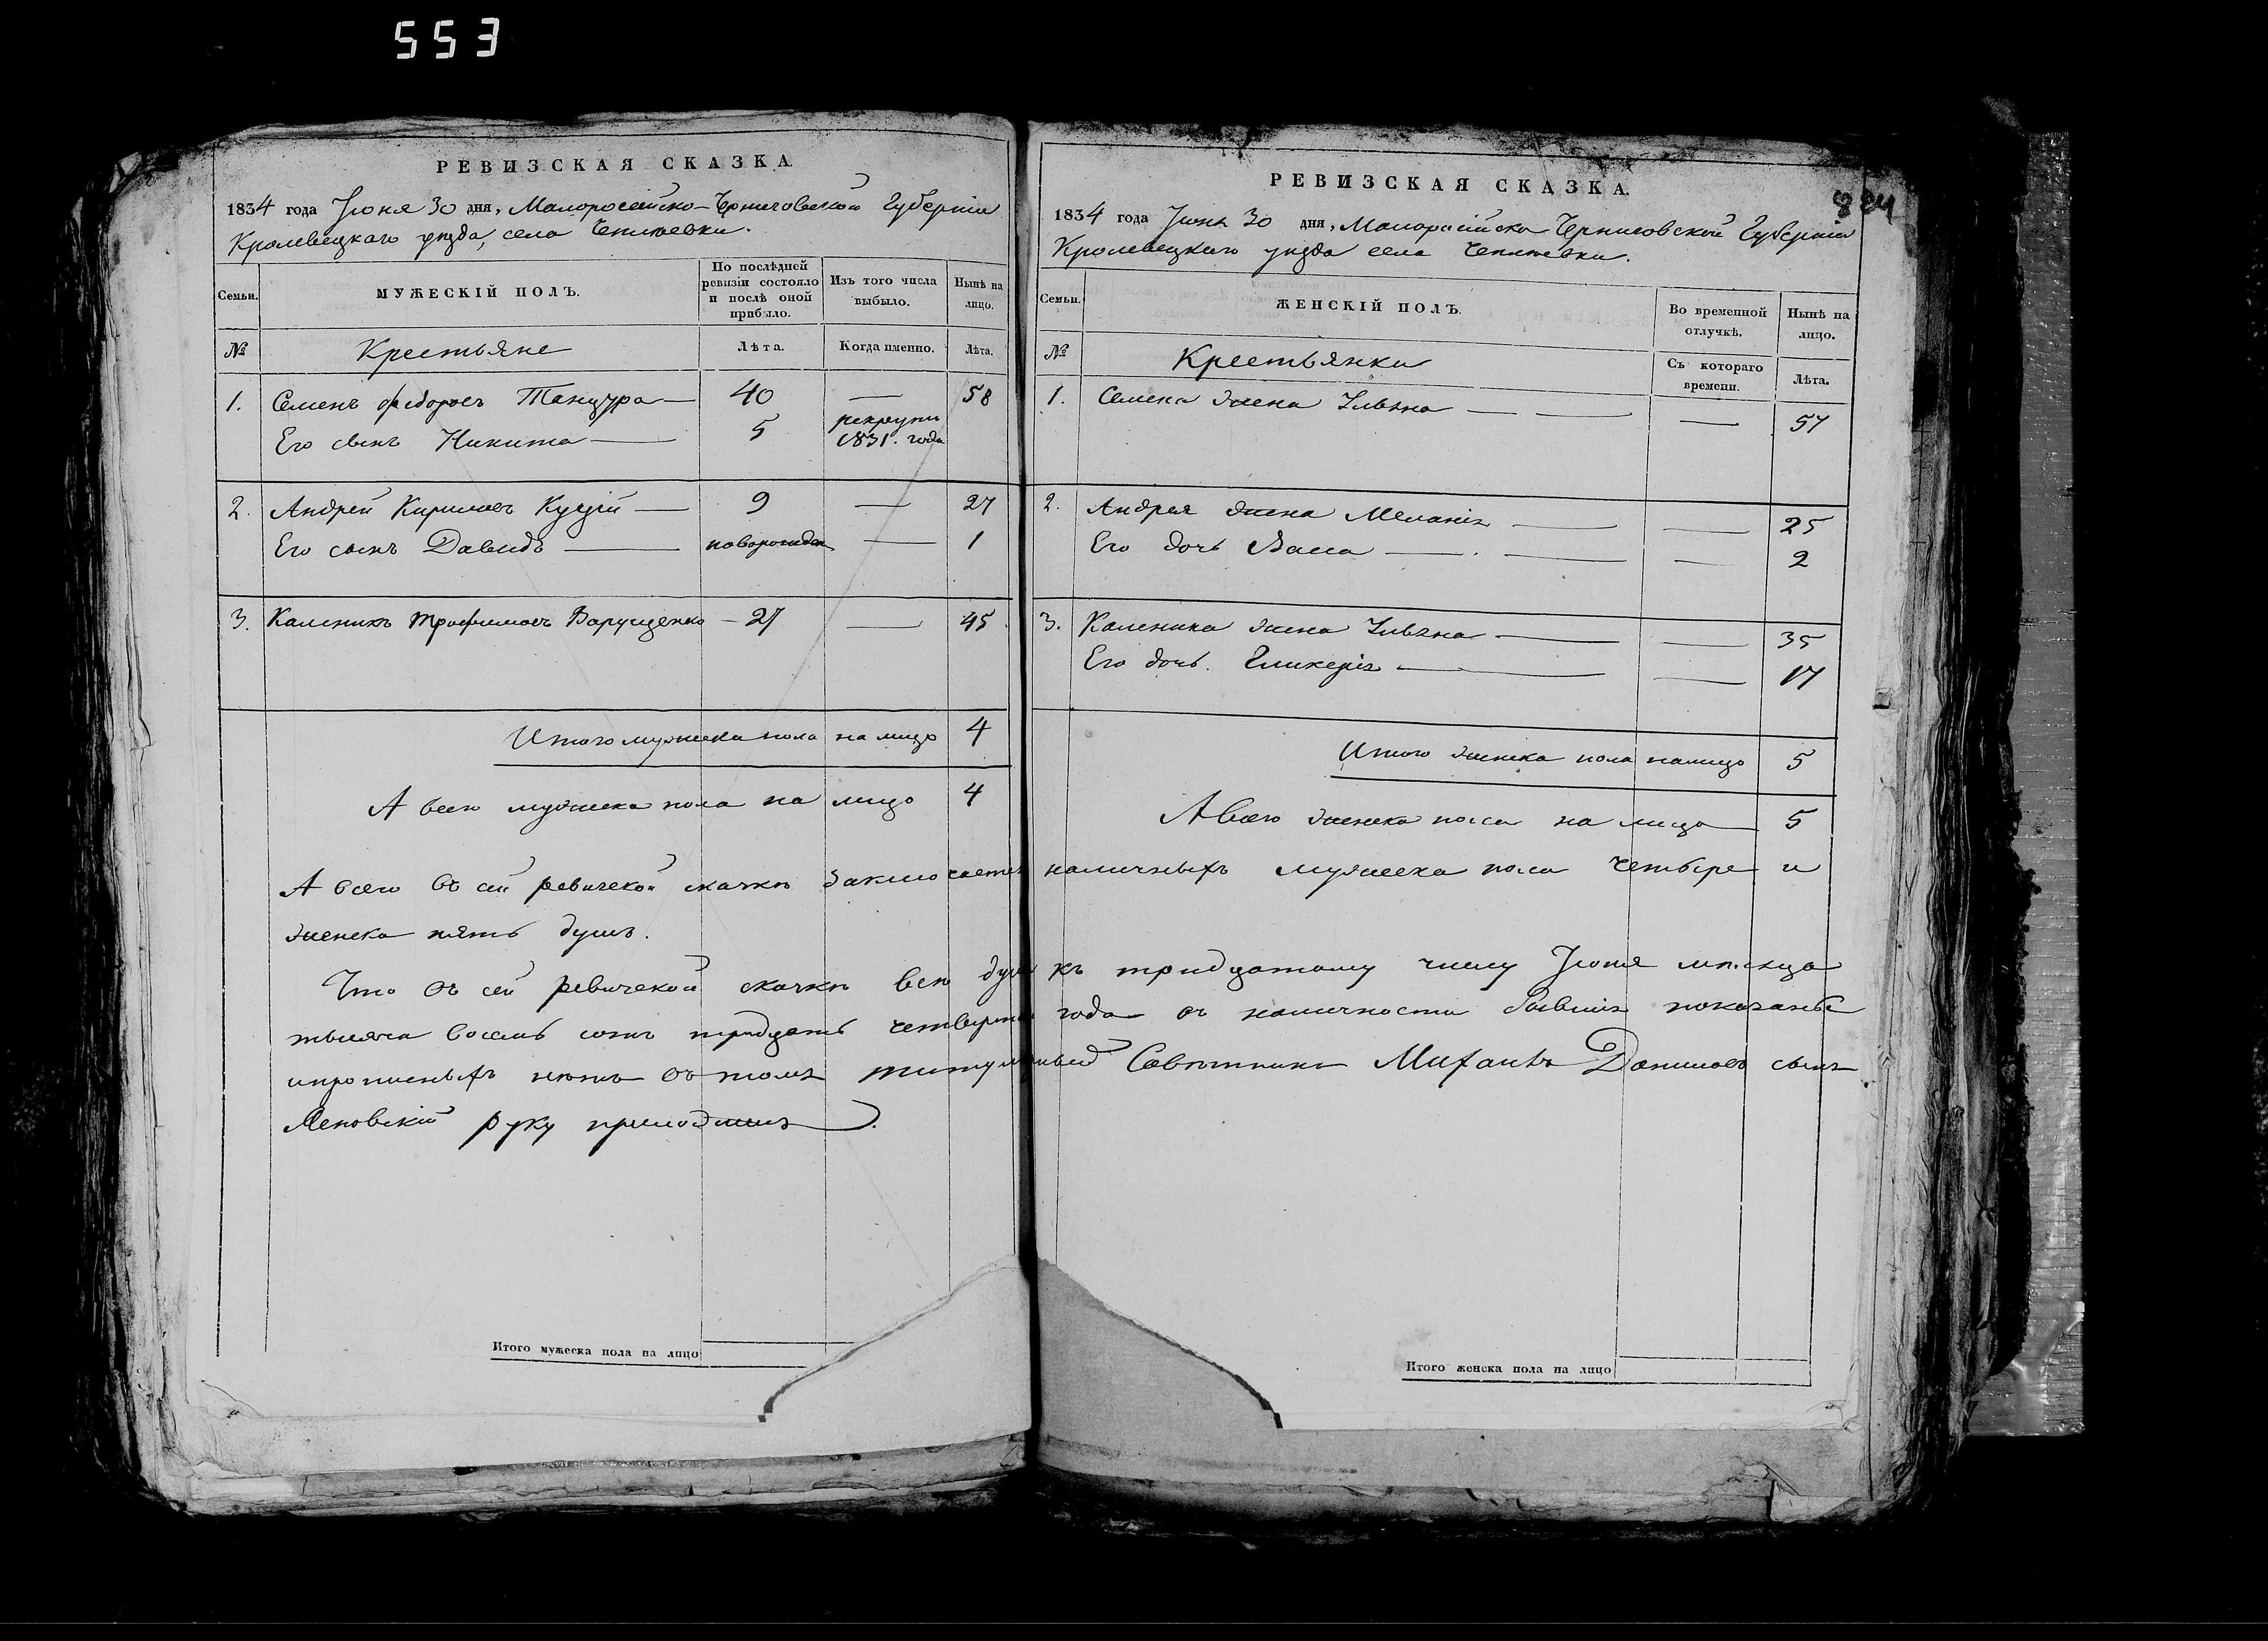 553
РЕВИЗСКАЯ СКАЗКА.
1834 года Іюня 30 дня, Малоросійско-Черниговской Губерніи
Кролевецкаго уезда, села Чепліевки.
Семьи.
МУЖЕСКІЙ ПОЛЪ.
По послѣдней ревизіи состояло и послѣ оной прибыло.
Изъ того числа выбыло.
Нынѣ на лицо.
№
Крестьяне
Лѣта.
Когда именно.
Лѣта.
1. Семенъ Федоровъ Танцура — 40 — 58
Его сынъ Никита — 5 рекрутъ 1831. года
2. Андрей Кириловъ Куцій — 9 — 27
Его сынъ Давидъ — новорожден — 1
3. Каленикъ Трофимовъ Варущенко — 27 — 45
Итого мужеска пола на лицо 4
А всего мужеска пола на лицо 4
РЕВИЗСКАЯ СКАЗКА.
1834 года Іюня 30 дня, Малоросійско Черниговской Губерніи
Кролевецкаго уезда села Чепліевки.
Семьи.
ЖЕНСКІЙ ПОЛЪ.
Во временной отлучкѣ.
Нынѣ на лицо.
№
Крестьянки
Съ котораго времени.
Лѣта.
1. Семена жена Ульяна — — — 57
2. Андрея жена Меланія — — 25
Его дочь Васса — — — 2
3. Каленика жена Ульяна — — 35
Его дочь Гликерія — — 17
Итого женска пола налицо 5
А всего женска пола на лицо 5
А всего въ сей ревизской сказкѣ заключается наличныхъ мужеска пола четыре и
женска пять душъ.
Что въ сей ревизской сказкѣ всѣ души къ тридцатому числу Іюня мѣсяца
тысяча восемь сотъ тридцать четвертаго года въ наличности бывшія показаны
и прописныхъ нѣтъ въ томъ титулярный Совѣтникъ Михаилъ Даниловъ сынъ
руку приложилъ
Итого мужеска пола на лицо
Итого женска пола на лицо